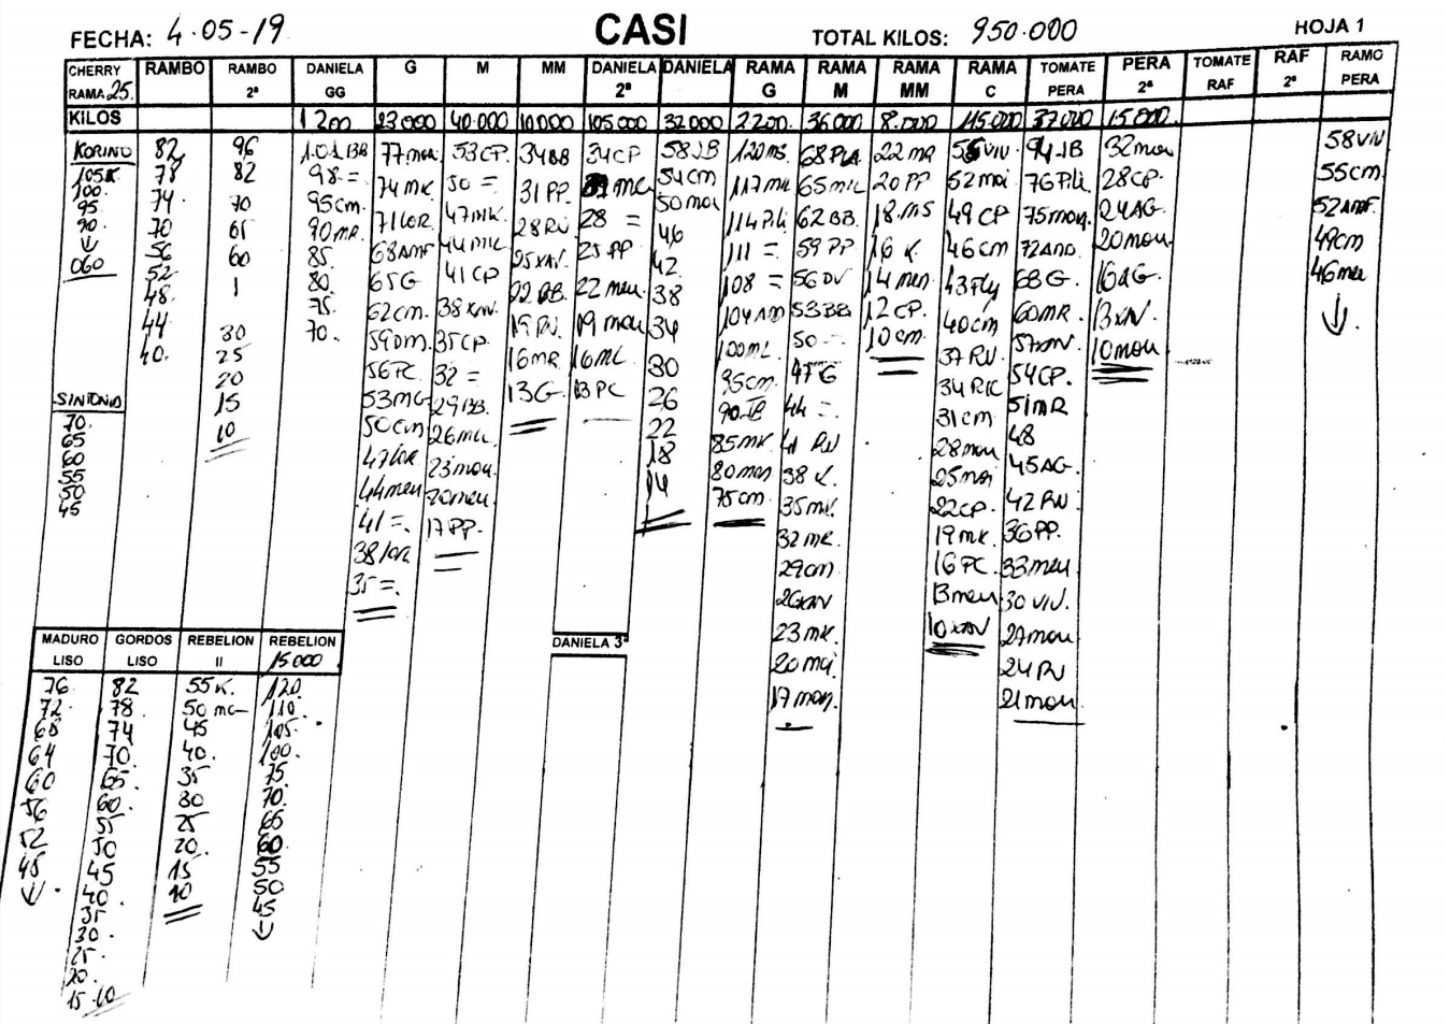 FECHA: 4-05-19 CASI TOTAL KILOS: 950.000 HOJA 1
CHERRY RAMA 25. RAMBO RAMBO 2ª DANIELA GG G M MM DANIELA 2ª DANIELA RAMA G RAMA M RAMA MM RAMA C TOMATE PERA PERA 2ª TOMATE RAF RAF 2ª RAMO PERA
KILOS 1200 23000 40.000 10000 105.000 32000 2200. 36000 8.000 115.000 37000 15.000.
KORINO
105K
100.
95
90.
↓
060
SINTONIO
70.
65
60
55
50
45
82
78
74.
70
56
52
48.
44
40.
96
82
70
65
60
1
30
25
20
15
10
101BB
98 =
95cm.
90MR.
85.
80.
75.
70.
77mou
74MK
71LOR.
68AMF
65G
62cm.
59DM.
56PC
53MG
50cm
47LOR
44meu
41 =.
38LOR
35 =.
53CP.
50 =.
47MK.
44MK
41CP
38XAV.
35CP.
32 =
29BB.
26ML.
23mou.
20meu.
17PP.
34BB
31PP.
28RV
25XAV.
22BB.
19RV.
16MR
13G.
34CP
31MC
28 =
25PP
22meu.
19mou
16ML
13PC
DANIELA 3ª
58JB
54cm
50moi
46
42.
38
34
30
26
22
18
14
120MS.
117MK
114Pili
111 =
108 =
104AMD
100ML.
95cm.
90JB
85MK
80men
75cm.
68PLA.
65ML
62BB.
59PP
56DV
53BB
50 =.
47G
44 =.
41RV
38K.
35MK.
32MR.
29cm
26XAV
23MK.
20moi
17mon.
22MR
20PP
18.MS
16K.
14men
12CP.
10cm.
55VIV
52moi
49CP
46cm
43Fly
40cm
37RV.
34RIC
31cm
28mou
25moi
22CP.
19MK.
16PC.
13meu
10XAV
94JB
76Pili
75mou.
72AMD.
68G.
60MR.
57XAV.
54CP.
51MR
48
45AG.
42RV
36PP.
33meu.
30VIV.
27mou
24RV
21mou
32mou
28CP.
24AG.
20mou.
16AG.
13XAV.
10mou.
58VIV
55cm.
52AMF.
49cm
46meu
↓.
MADURO LISO GORDOS LISO REBELION II REBELION 15.000
76. 82 55K. 120.
72. 78. 50MG 110.
68 74 45 105.
64 70. 40. 100.
60 65. 35 75
56 60. 30 70.
52 55 25 65
48 50 20. 60
↓. 45 15 55
40. 10 50
35 45
30. ↓
25.
20.
15-10